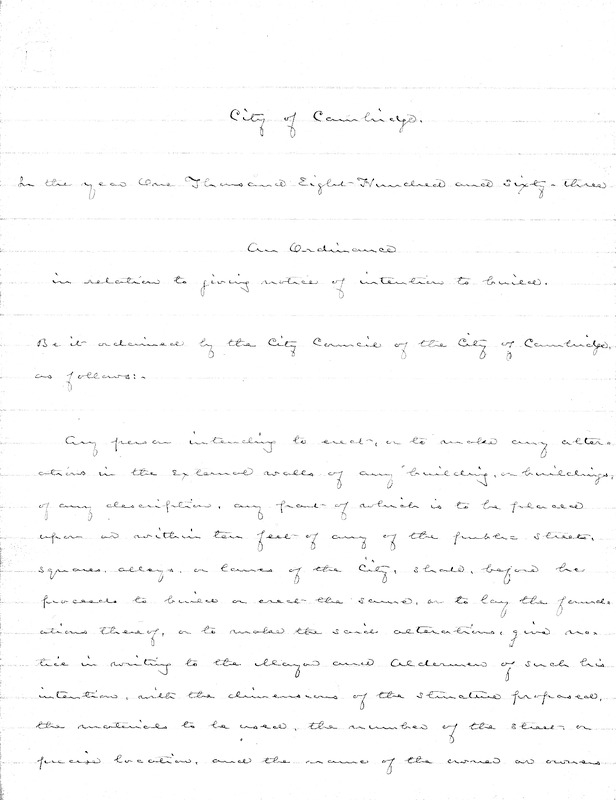 City of Cambridge.
In the year One Thousand Eight Hundred and Sixty-three
An Ordinance
in relation to giving notice of intention to build.
Be it ordained by the City Council of the City of Cambridge,
as follows:-
Any person intending to erect, or to make any alter-
ations in the external walls of any building, or buildings,
of any description, any part of which is to be placed
upon or within ten feet of any of the public streets,
squares, alleys, or lanes of the City, shall, before he
proceeds to build or erect the same, or to lay the found-
ations thereof, or to make the said alterations, give no-
tice in writing to the Mayor and Aldermen of such his
intention, with the dimensions of the structure proposed,
the materials to be used, the number of the street or
precise location, and the name of the owner or owners